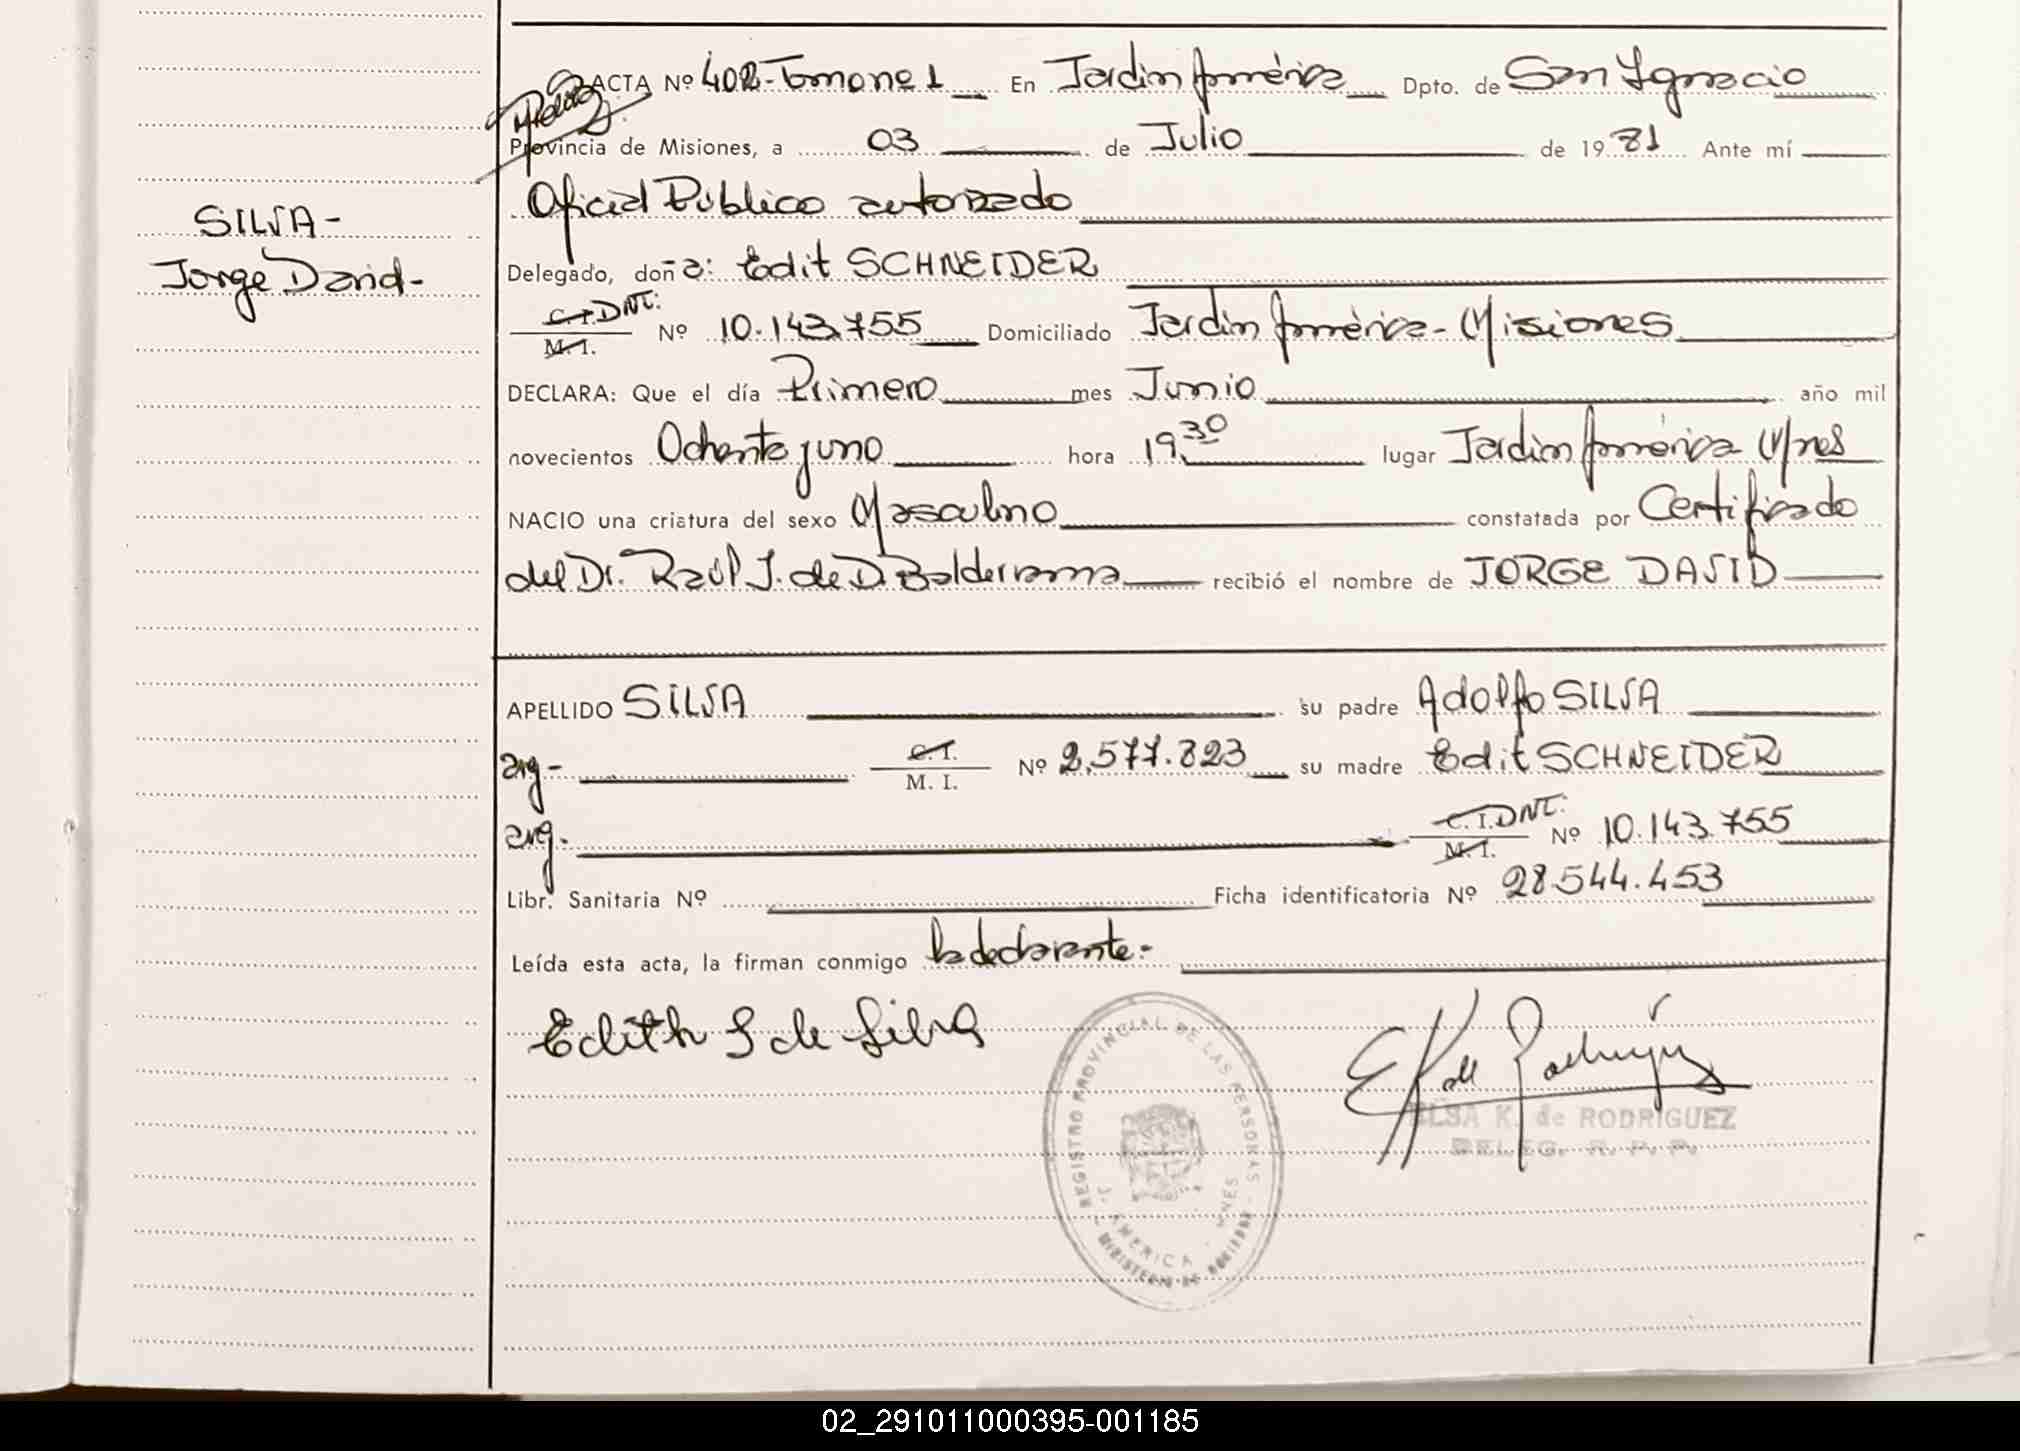 ACTA Nº 402-Tomo nº 1 En Jardin América Dpto. de San Ignacio
Provincia de Misiones, a 03 de Julio de 1981 Ante mí
Oficial Público autorizado
SILVA-
Delegado, doña: Edit SCHNEIDER
Jorge David-
C.I. DNI: M.I. Nº 10.143.755 Domiciliado Jardin América-Misiones
DECLARA: Que el día Primero mes Junio año mil
novecientos Ochenta y uno hora 19,30 lugar Jardin América Mnes
NACIO una criatura del sexo Masculino constatada por Certificado
del Dr. Raúl J. de D. Balderrama recibió el nombre de JORGE DAVID
APELLIDO SILVA su padre Adolfo SILVA
arg- C.I. M. I. Nº 2.577.823 su madre Edit SCHNEIDER
arg. C. I. DNI: M.I. Nº 10.143.755
Libr. Sanitaria Nº Ficha identificatoria Nº 28.544.453
Leída esta acta, la firman conmigo la declarante.-
Edith S de Silva
E K de Rodriguez
ELSA K. de RODRIGUEZ
DELEG. R. P. P.
REGISTRO PROVINCIAL DE LAS PERSONAS
J. AMERICA - MNES
MINISTERIO DE GOBIERNO
02_291011000395-001185